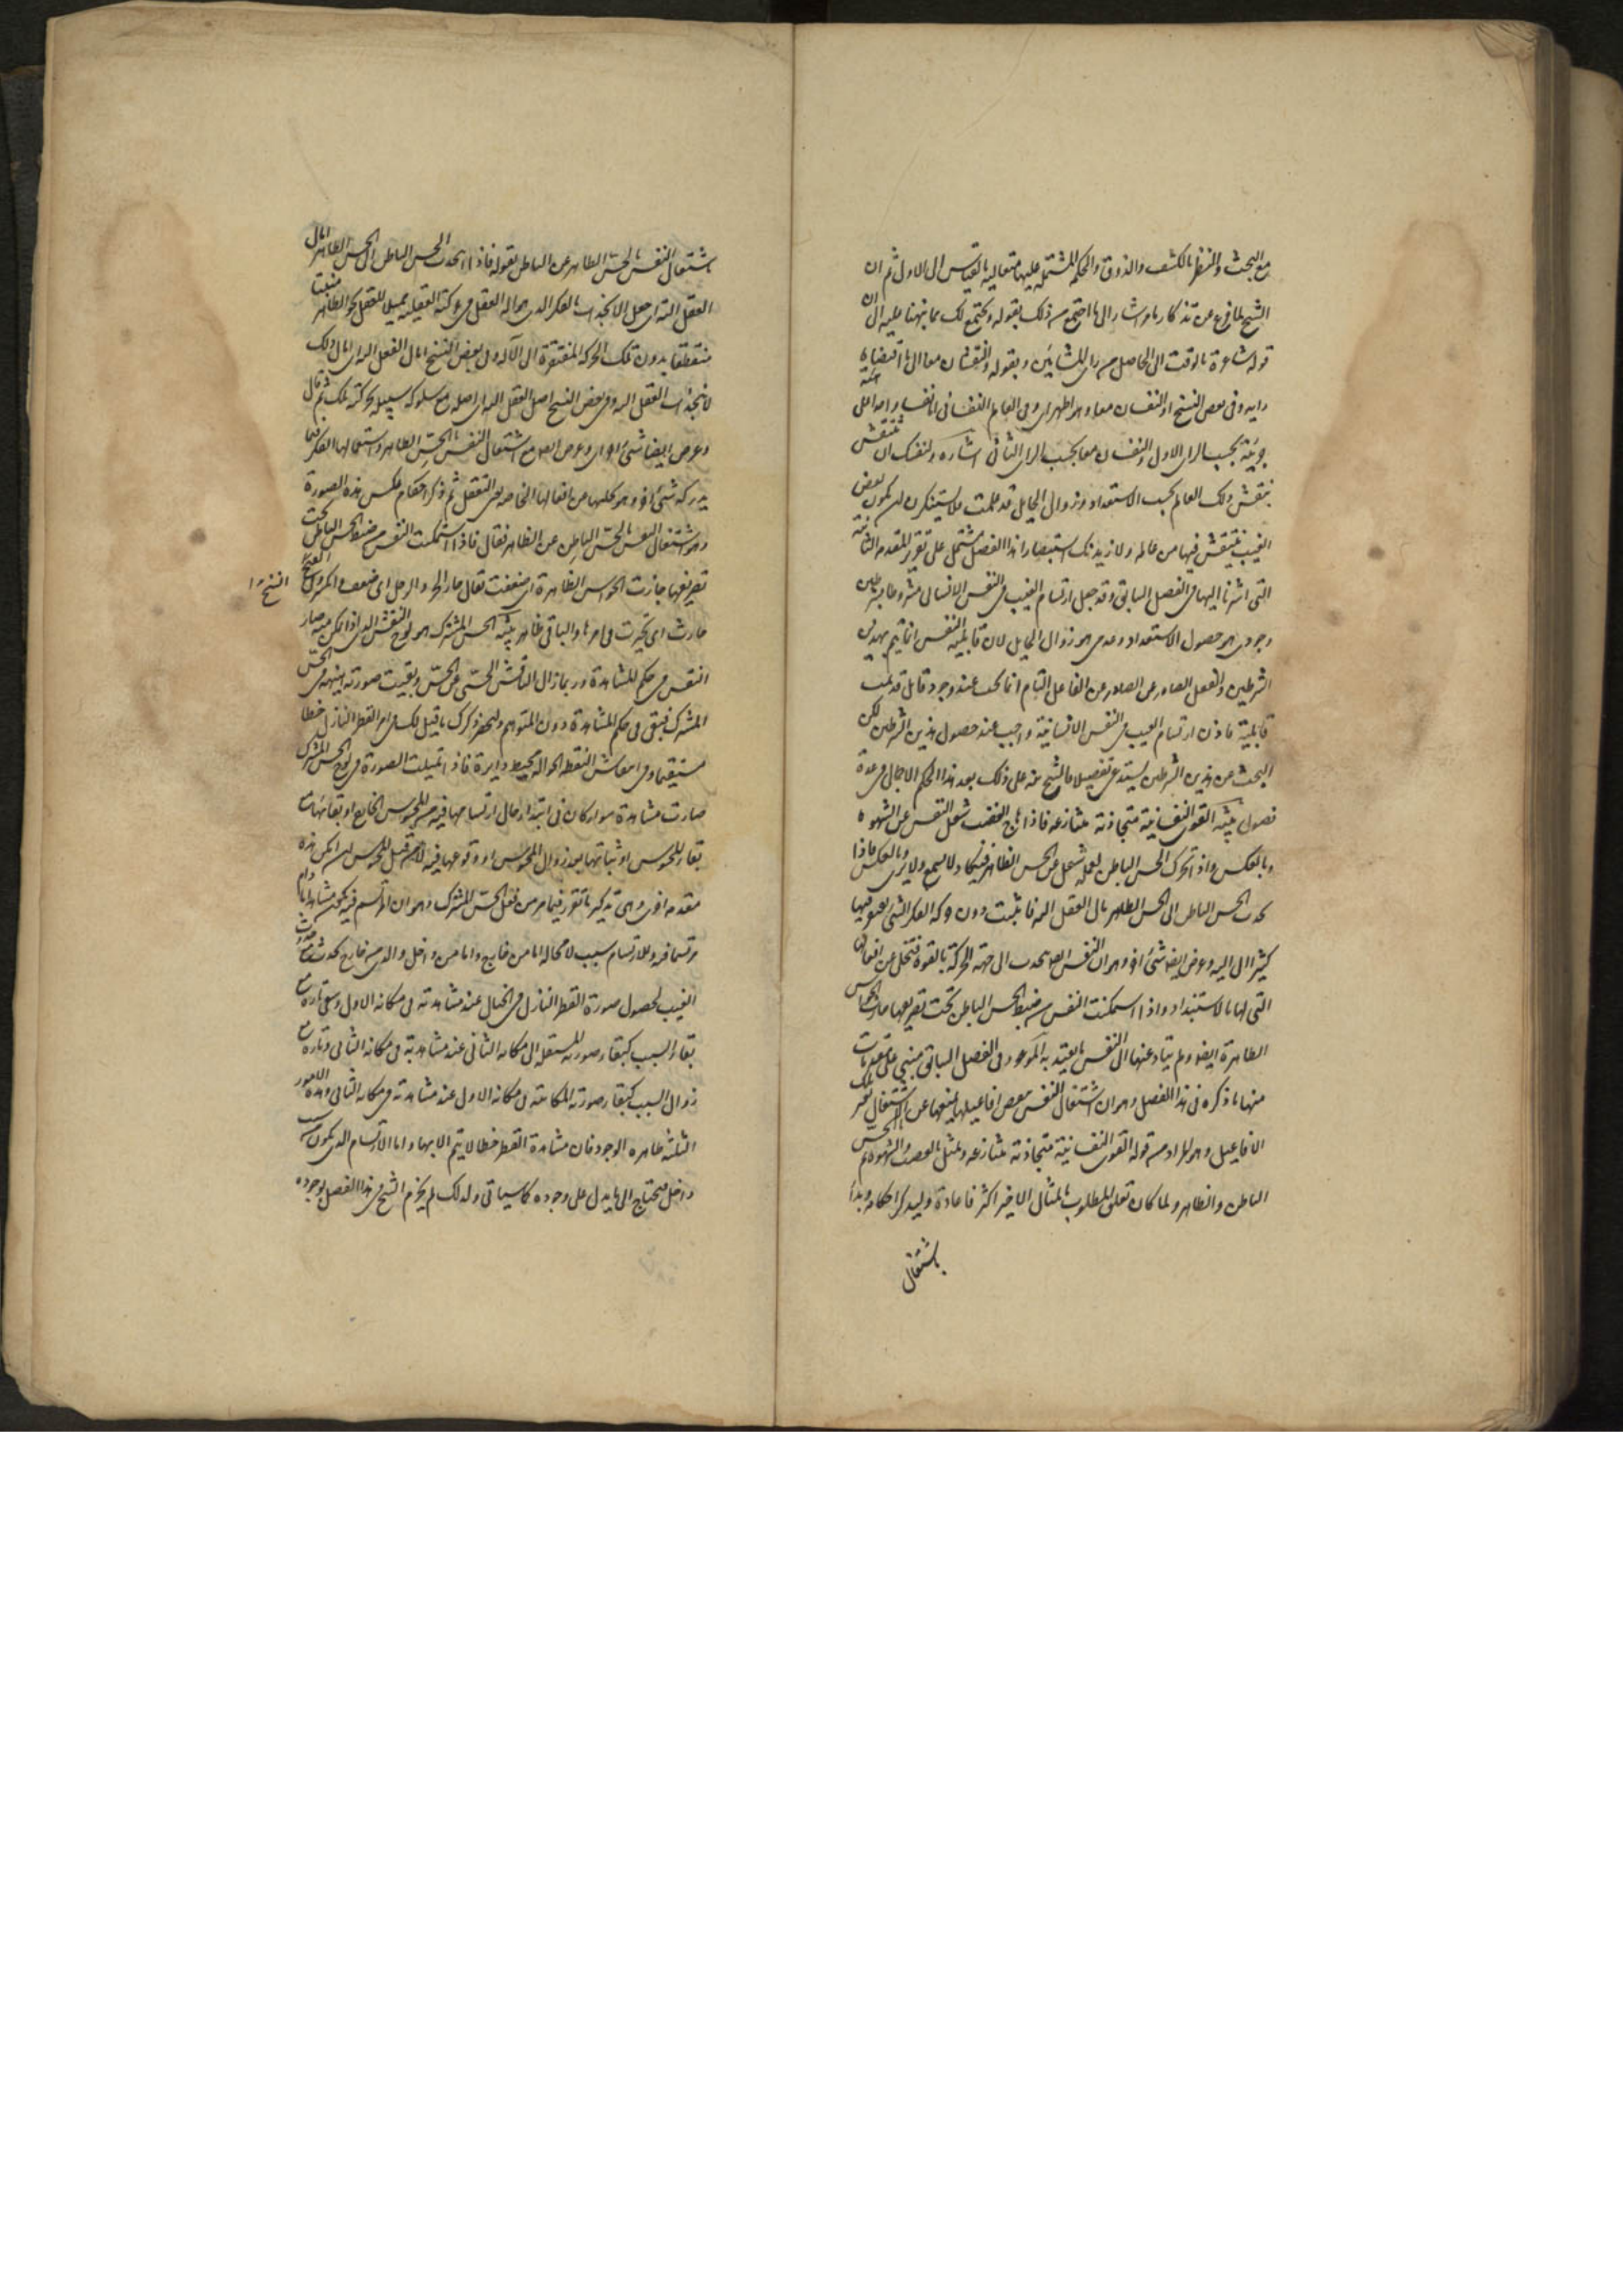 مع البحث والنظر بالكشف والذوق والحكم المشتملة عليها متعالية بالقياس الى الاول ثم ان
الشيخ لما فرغ عن تذكار ما مر اشار الى ما اجتمع من ذلك بقوله ويجتمع لك مما نبهنا عليه الى ان
قوله شاعرة بالوقت الى الحاصل من راى المشائين وبقوله والنقشان معا الى ما اقتضاه
رايه وفى بعض النسخ او النقشان معا وهو اظهر اى وفى العالم النفسانى اما نقشا واحدا على هيئة
جزئية بحسب الراى الاول والنقشان معا بحسب الراى الثانى اشارة ولنفسك ان تنتقش
بنقش ذلك العالم بحسب الاستعداد وزوال الحايل قد علمت فلا تستنكرن ان يكون بعض
الغيب ينتقش فيها من عالمه ولازيدنك استبصارا هذا الفصل مشتمل على تقرير المقدمة الثانية
التى اشرنا اليها فى الفصل السابق وقد جعل ارتسام الغيب فى النفس الانسانى مشروطا بشرطين
وجودى هو حصول الاستعداد وعدمى هو زوال الحايل لان قابلية النفس انما يتم بهذين
الشرطين والفعل الصادر عن الفاعل التام انما يجب عند وجود قابل قد تمت
قابليته فاذن ارتسام الغيب فى النفس الانسانية واجب عند حصول هذين الشرطين لكن
البحث عن هذين الشرطين يستدعى تفصيلا فالشيخ نبه على ذلك بعد هذا الحكم الاجمالى فى عدة
فصول تنبيه القوى النفسانية متجاذبة متنازعة فاذا هاج الغضب شغل النفس عن الشهوة
وبالعكس واذا تجرد الحس الباطن لعمله شغل عن الحس الظاهر فيكاد لا يسمع ولا يرى وبالعكس فاذا
انجذب الحس الباطن الى الحس الظاهر امال العقل الته فانبت دون حركة الفكر التى يفتقر فيها
كثيرا الى اليه وعرض ايضا شئ اخر وهو ان النفس ايضا تنجذب الى جهة الحركة القوية فتتخلى عن افعالها
التى لها بالاستبداد واذا استمكنت النفس من ضبط الحس الباطن تحت تصريفها خارت الحواس
الظاهرة ايضا ولم يتاد عنها الى النفس ما يعتد به الموعود فى الفصل السابق مبنى على مقدمات
منها ما ذكره فى هذا الفصل وهو ان اشتغال النفس ببعض افاعيلها يمنعها عن الاشتغال بغير تلك
الافاعيل وهو المراد من قوله القوى النفسانية متجاذبة متنازعة وتمثل بالغضب والشهوة ثم بالحس
الباطن والظاهر ولما كان تعلق المطلوب بالمثال الاخير اكثر فاعاده وليذكر احكامه وبدا
باشتغال
باشتغال النفس بالحس الظاهر عن الباطن بقوله فاذا انجذب الحس الباطن الى الحس الظاهر امال
العقل الته اى جعل الانجذاب بالفكر الذى هو الة العقل فى حركته العقلية مميلا للعقل نحو الظاهر منبتا
منقطعا بدون تلك الحركة المفتقرة الى الالة وفى بعض النسخ امال العقل اليه اى امال ذلك
الانجذاب العقل اليه وفى بعض النسخ اضل العقل اليه اى اضله مع سلوكه سبيله بحركته تلك ثم قال
وعرض ايضا شئ اخر اى وعرض ايضا مع اشتغال النفس بالحس الظاهر واستعمالها الفكر فيما
يدركه شئ اخر وهو تخليها عن افعالها الخاصة يعنى التعقل ثم ذكر احكام عكس هذه الصورة
وهو اشتغال النفس بالحس الباطن عن الظاهر فقال فاذا استمكنت النفس من ضبط الحس الباطن تحت
تصريفها خارت الحواس الظاهرة اى ضعفت يقال خار الحر والرجل اى ضعف وانكسر وفى بعض
النسخ
حارت اى تحيرت فى امرها والباقى ظاهر تنبيه الحس المشترك هو لوح النقش الذى اذا تمكن منه صار
النقش فى حكم المشاهدة وربما زال الناقش الحسى عن الحس وبقيت صورته هنيهة فى الحس
المشترك فبقى فى حكم المشاهدة دون المتوهم وليحضر ذكرك ما قيل لك فى امر القطر النازل خطا
مستقيما وفى انتقاش النقطة الجوالة محيط دايرة فاذا تمثلت الصورة فى لوح الحس المشترك
صارت مشاهدة سواء كان فى ابتداء حال ارتسامها فيه من المحسوس الخارج او بقائها مع
بقاء المحسوس او ثباتها بعد زوال المحسوس او وقوعها فيه لا من قبل المحسوس ان امكن هذه
مقدمة اخرى وهى تذكير ما تقرر فيما مر من فعل الحس المشترك وهو ان المرتسم فيه يكون مشاهدا ما دام
مرتسما فيه وللارتسام سبب لا محالة اما من خارج واما من داخل والذى من خارج يحدث مع حدوث
السبب لحصول صورة القطر النازل فى الخيال عند مشاهدته فى مكانه الاول ويبقى تارة مع
بقاء السبب كبقاء صورته المنتقلة الى مكانه الثانى عند مشاهدته فى مكانه الثانى وتارة مع
زوال السبب كبقاء صورته الكائنة فى مكانه الاول عند مشاهدته فى مكانه الثانى وهذه الامور
الثلثة ظاهرة الوجود فان مشاهدة القطر خطا لا يتم الا بها واما الارتسام الذى يكون سببه
داخل فيحتاج الى ما يدل على وجوده كما سياتى ولذلك لم يجزم الشيخ فى هذا الفصل بوجوده